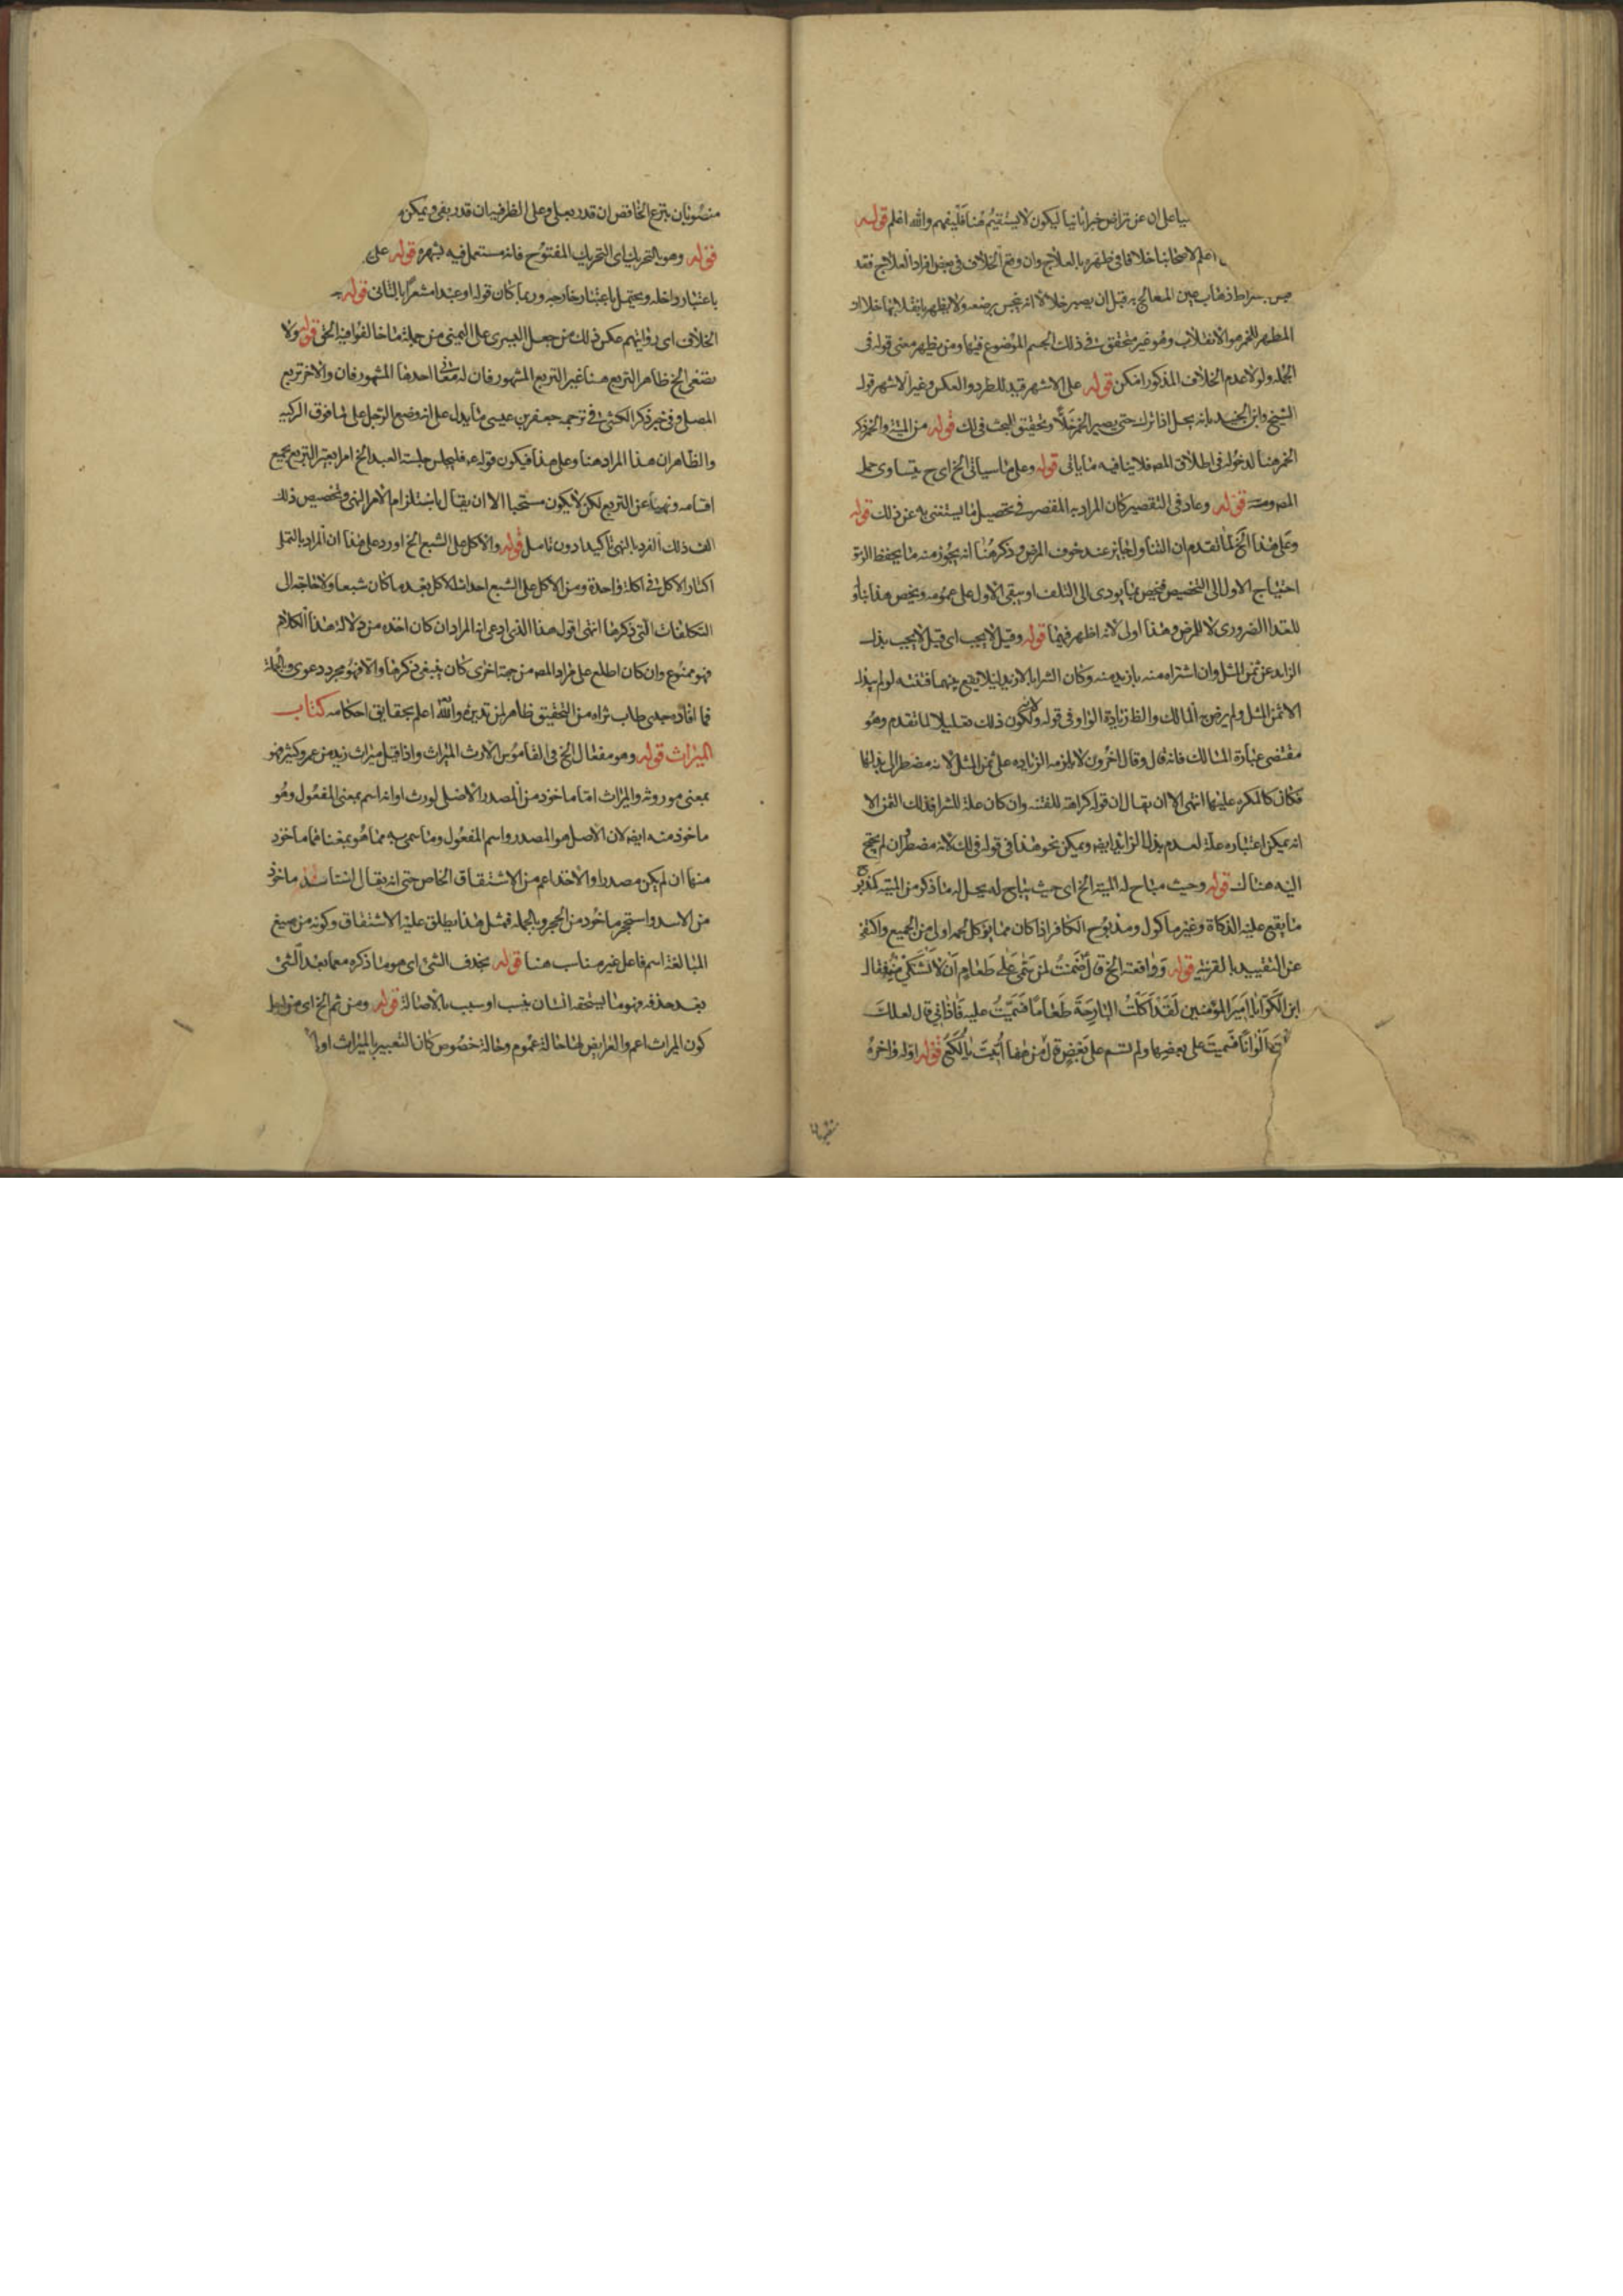 على ان عن تراض خبرا ثانيا ليكون لا يستقيم هنا فليفهم والله اعلم قوله
اعلم لاصحابنا خلافا في طهره بالعلاج وان وقع الخلاف في بعض افراد العلاج فقد
ذهاب عين المعالج به قبل ان يصير خلا لانه ينجس بوضعه ولا يطهر بانقلابها خلا اذ
المطهر للخمر هو الانقلاب وهو غير متحقق في ذلك الجسم الموضوع فيها ومن يظهر معنى قوله في
الجمله ولولا عدم الخلاف المذكور امكن قوله على الاشهر قيد للطرد والعكس وغير الاشهر قول
الشيخ وابن الجنيد بانه يحل اذا ترك حتى يصير الخمر خلًّا وتحقيق البحث في لك قوله من الميتة والخمر ذكر
الخمر هنا لدخوله في اطلاق المصـ فلا ينافيه ما ياتى قوله وعلى ما سياتى الخ اى ح يتساوى حمل
قوله وعاد في التقصير كان المراد به المقصر في تحصيل ما يستغنى به عن ذلك قوله
وعلى هذا الخ لما تقدم ان التناول جايز عند خوف المرض وذكر هنا انه يجوز منه ما يحفظ الرمق
احتياج الاول الى التخصيص فيخص بما يودى الى التلف او يبقى الاول على عمومه ويخص هذا بناو
للغذا الضرورى لا للمرض وهذا اولى لانه اظهر فيهما قوله وقيل لا يجب اى قيل لا يجب بذل
الزايد عن ثمن المثل وان اشتراه منه بازيد منه وكان الشرا بالازيد ليلا يقع بينهما فتنه لو لم يبذل
الا ثمن المثل ولم يرض المالك والظ زيادة الواو في قوله ولكون ذلك تعليلا لما تقدم وهو
مقتضى عبارة المسالك فانه قال وقال اخرون لا يلزمه الزياده على ثمن المثل لانه مضطر الى بذلها
فكان كالمكره عليها انتهى الا ان يقال ان قوله كراهة للفتنه وان كان علة للشرا فذلك الثمن الا
انه يمكن اعتباره علة لعدم بذل الزايد ايضا ويمكن نحو هذا في قوله في لك لانه مضطر ان لم يحتج
اليه هناك قوله وحيث مباح له الميتة الخ اى حيث يباح له يحل له ما ذكر من الميتة كمذبوح
ما يقع عليه الذكاة وغير ماكول ومذبوح الكافر اذا كان مما يوكل لحمه اولى من الجميع واكتفى
عن التقييد بالقرينة قوله وواقعته الخ قال ضمنت لمن سمى على طعام ان لا يشتكى منه فقال
ابن الكوا يا امير المؤمنين لقد اكلت البارحة طعاما فسميت عليه فاذانى قال لعلك
اكلت الوانا فسميت على بعضها ولم تسم على بعض قال من هذا اتيت يا لكع قوله اوله واخره
منصوبان بنزع الخافض ان قدر بعلى وعلى الظرفيه ان قدر بفى ويمكن
قوله وهو بالتحريك اى التحريك المفتوح فانه مستعمل فيه لشهره قوله على
باعتبار داخله ويحتمل باعتبار خارجه وربما كان قوله او عبدا مشعرا بالثانى قوله
الخلاف اى روايتهم عكس ذلك من جعل اليسرى على اليمنى من جملة ما خالفوا فيه الحق قوله ولا
يتنفى الخ ظاهر التربع هنا غير التربع المشهور فان له معانى احدها المشهور فان والاخر تربع
المصلى وفى خبر ذكر الكشى في ترجمه جعفر بن عيسى ما يدل على انه وضع الرجل على ما فوق الركبه
والظاهر ان هذا المراد هنا وعلى هذا فيكون قوله ع فليجلس جلسة العبد الخ امرا بغير التربع بجميع
اقسامه ونهيا عن التربع لكن لا يكون مستحبا الا ان يقال باستلزام الامر النهى وتخصيص ذلك
ذلك الفرد بالنهى تاكيدا دون تامل قوله والاكل على الشبع الخ اورد على هذا ان المراد بالتملى
اكثار الاكل في اكلة واحدة ومن الاكل على الشبع احداث الاكل بعد ما كان شبعا ولا حاجة الى
التكلفات التى ذكرها انتهى اقول هذا الذى ادعى انه المراد ان كان اخذه من دلالة هذا الكلام
فهو ممنوع وان كان اطلع على مراد المصـ من جهة اخرى كان ينبغى ذكرها والا فهو مجرد دعوى وبالجملة
فما افاده جدى طاب ثراه من التحقيق ظاهر لمن تدبره والله اعلم بحقايق احكامه كتاب
الميراث قوله وهو مفعال الخ في القاموس الارث الميراث واذا قيل ميراث زيد من عمرو كثير فهو
بمعنى موروثه والميراث اما ماخوذ من المصدر الاصلى لورث او انه اسم بمعنى المفعول وهو
ماخوذ منه ايضا لان الاصل هو المصدر واسم المفعول وما سمى به مما هو بمعناها ماخوذ
منها ان لم يكن مصدرا والاخذ اعم من الاشتقاق الخاص حتى انه يقال استاسد ماخوذ
من الاسد واستحجر ماخوذ من الحجر وبالجمله فمثل هذا يطلق عليه الاشتقاق وكونه من صيغ
المبالغة اسم فاعل غير مناسب هنا قوله بحذف الشئ اى هو ما ذكره معما بعد الشئ
بعد حذفه وهو ما يستحقه انسان بنسب او سبب بالاصالة قوله ومن ثم الخ اى من اجل
كون الميراث اعم والفرايض لها حالة عموم وحالة خصوص كان التعبير بالميراث اولى